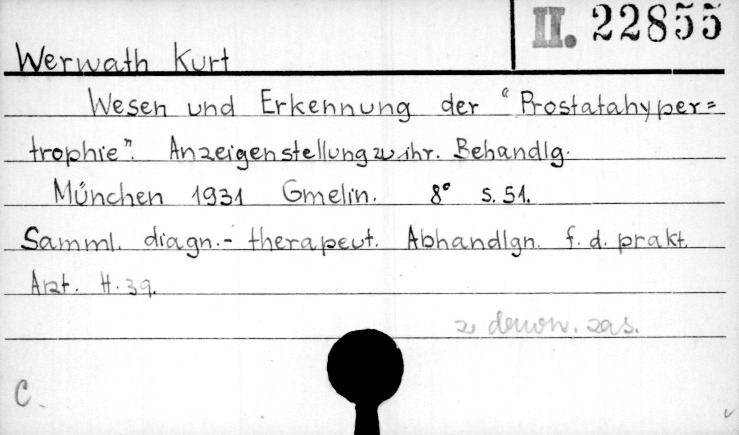 II. 22855
Werwath Kurt
Wesen und Erkennung der "Prostatahyper=
trophie". Anzeigenstellung zu ihr. Behandlg.
München 1931 Gmelin. 8° S. 51.
Samml. diagn.- therapeut. Abhandlgn. f. d. prakt.
Arzt. H. 39.
z
C.